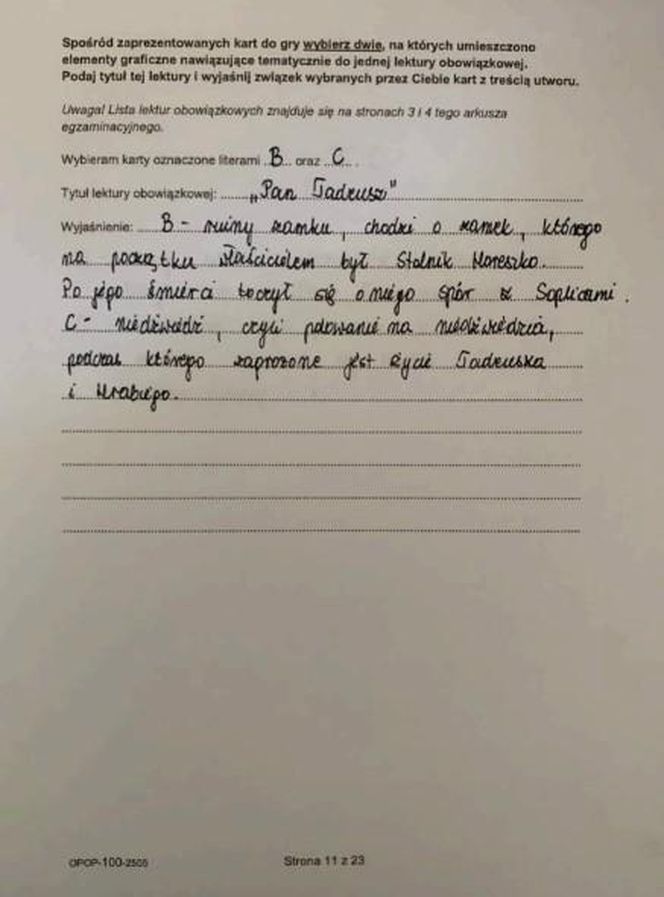 Spośród zaprezentowanych kart do gry wybierz dwie, na których umieszczono
elementy graficzne nawiązujące tematycznie do jednej lektury obowiązkowej.
Podaj tytuł tej lektury i wyjaśnij związek wybranych przez Ciebie kart z treścią utworu.
Uwaga! Lista lektur obowiązkowych znajduje się na stronach 3 i 4 tego arkusza
egzaminacyjnego.
Wybieram karty oznaczone literami B oraz C
Tytuł lektury obowiązkowej: „Pan Tadeusz"
Wyjaśnienie: B - ruiny zamku, chodzi o zamek, którego
na początku właścicielem był Stolnik Horeszko.
Po jego śmierci toczył się o niego spór z Soplicami.
C - niedźwiedź, czyli polowanie na niedźwiedzia,
podczas którego zagrożone jest życie Tadeuszka
i Hrabiego.
OPOP-100-2505
Strona 11 z 23